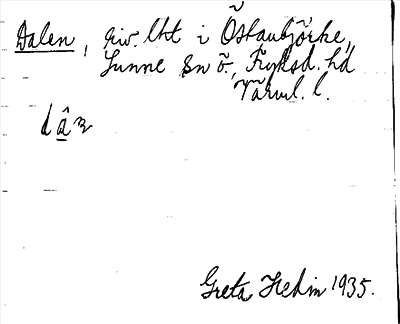 Dalen, riv. lht i Östanbjörke,
Sunne sn ö., Fryksd. hd
Värml. l.
dân
Greta Hedin 1935.